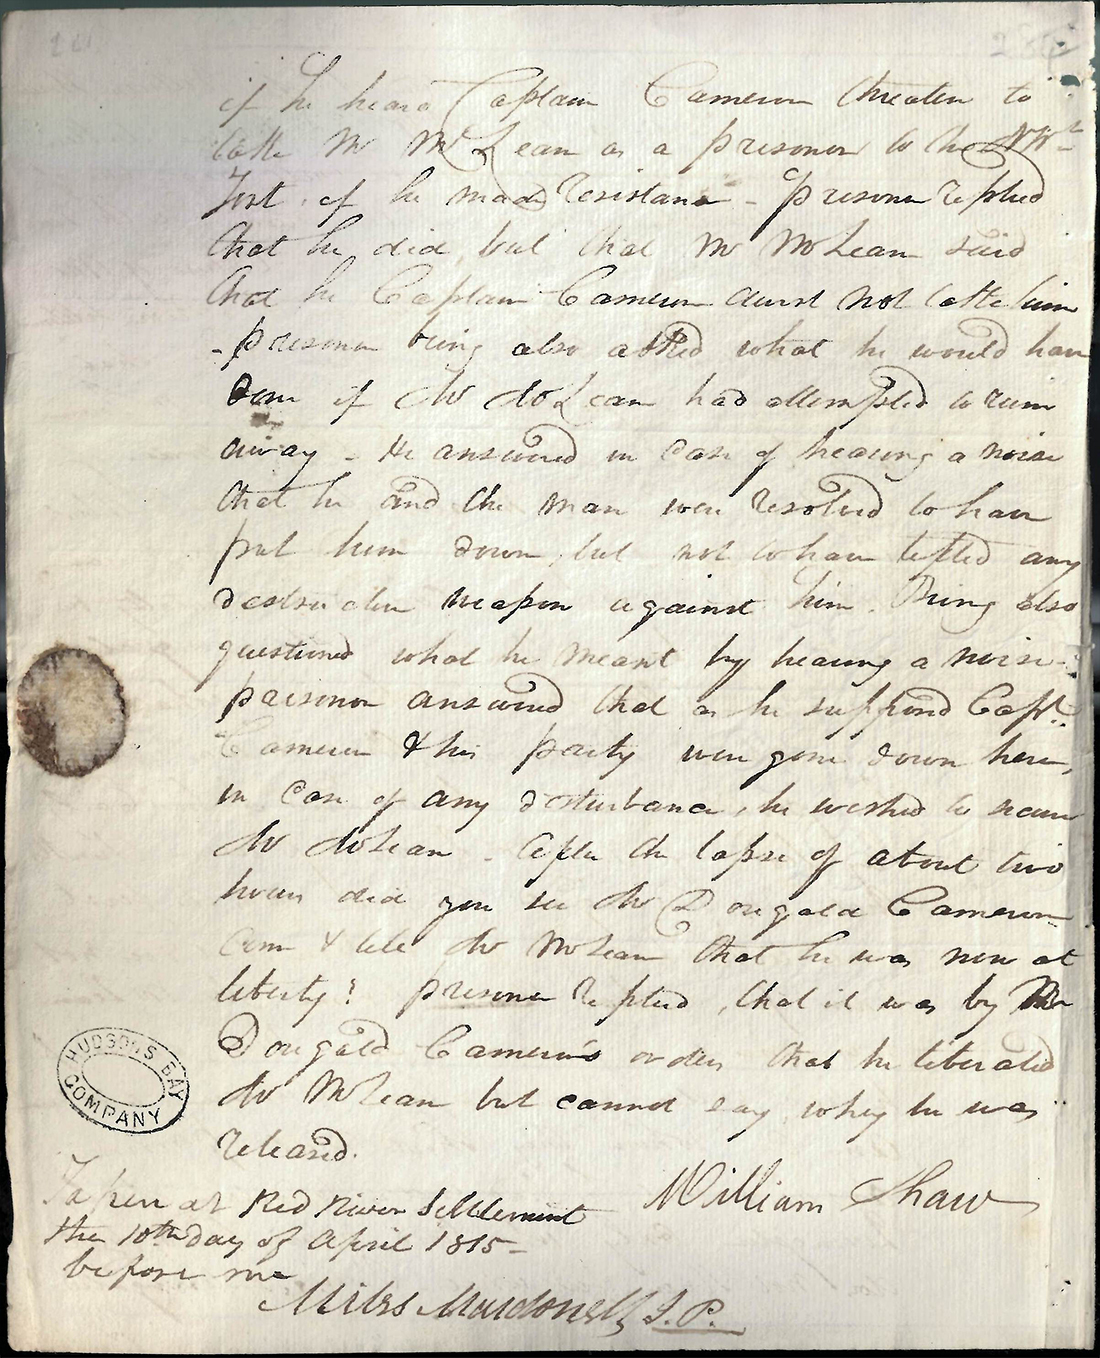 if he heard Captain Cameron threaten to
take Mr McLean as a prisoner to the NWt
Fort, if he made resistance - prisoner replied
that he did, but that Mr McLean said
that he Captain Cameron durst not take him
- prisoner being also asked what he would have
done if Mr McLean had attempted to run
away - He answered in case of hearing a noise
that he and the man were resolved to have
put him down, but not to have lifted any
destructive weapon against him. Being also
questioned what he meant by hearing a noise -
prisoner answered that as he supposed Capt.
Cameron & his party were gone down here,
in case of any disturbance, he wished to secure
Mr McLean - After the lapse of about two
hours did you see Mr Dougald Cameron
come & tell Mr McLean that he was now at
liberty? prisoner replied, that it was by Mr
Dougald Cameron's orders that he liberated
Mr McLean but cannot say whey he was
released.
William Shaw
Taken at Red River Settlement
the 10th day of April 1815 -
before me
Miles Macdonell, J.P.
HUDSONS BAY
COMPANY